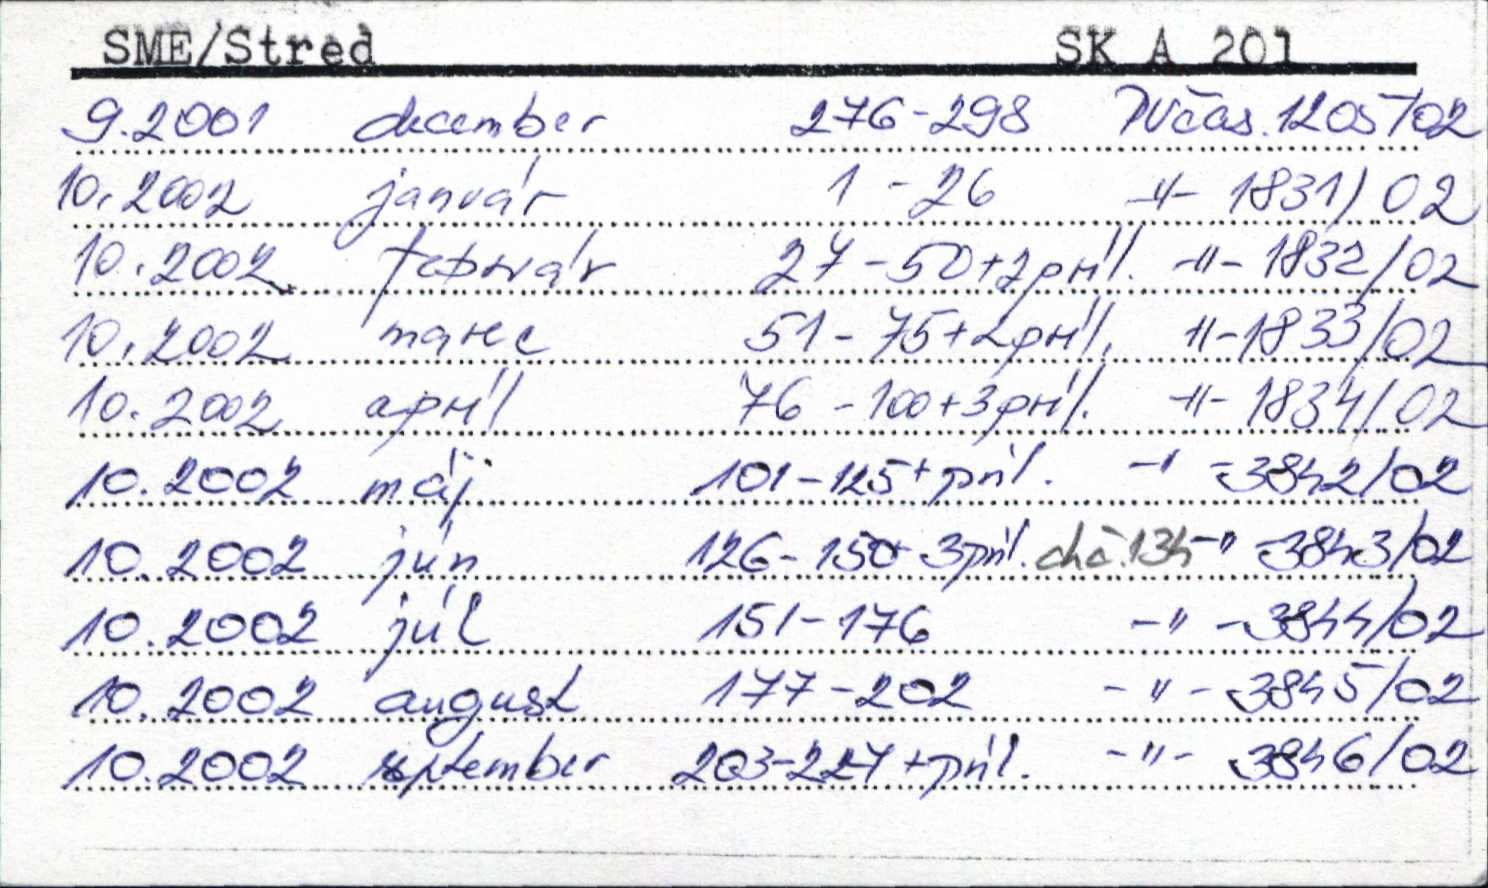 SME/Stred SK A 201
9.2001 december 276-298 PVčas. 1205/02
10.2002 január 1-26 -"- 1831/02
10.2002 február 27-50+2príl. -"- 1832/02
10.2002 marec 51-75+2príl. "-1833/02
10.2002 apríl 76-100+3príl. -"- 1834/02
10.2002 máj 101-125+príl. -"-3842/02
10.2002 jún 126-150+3príl. chč.134-"-3843/02
10.2002 júl 151-176 -"-3844/02
10.2002 august 177-202 -"-3845/02
10.2002 september 203-227+príl. -"-3846/02